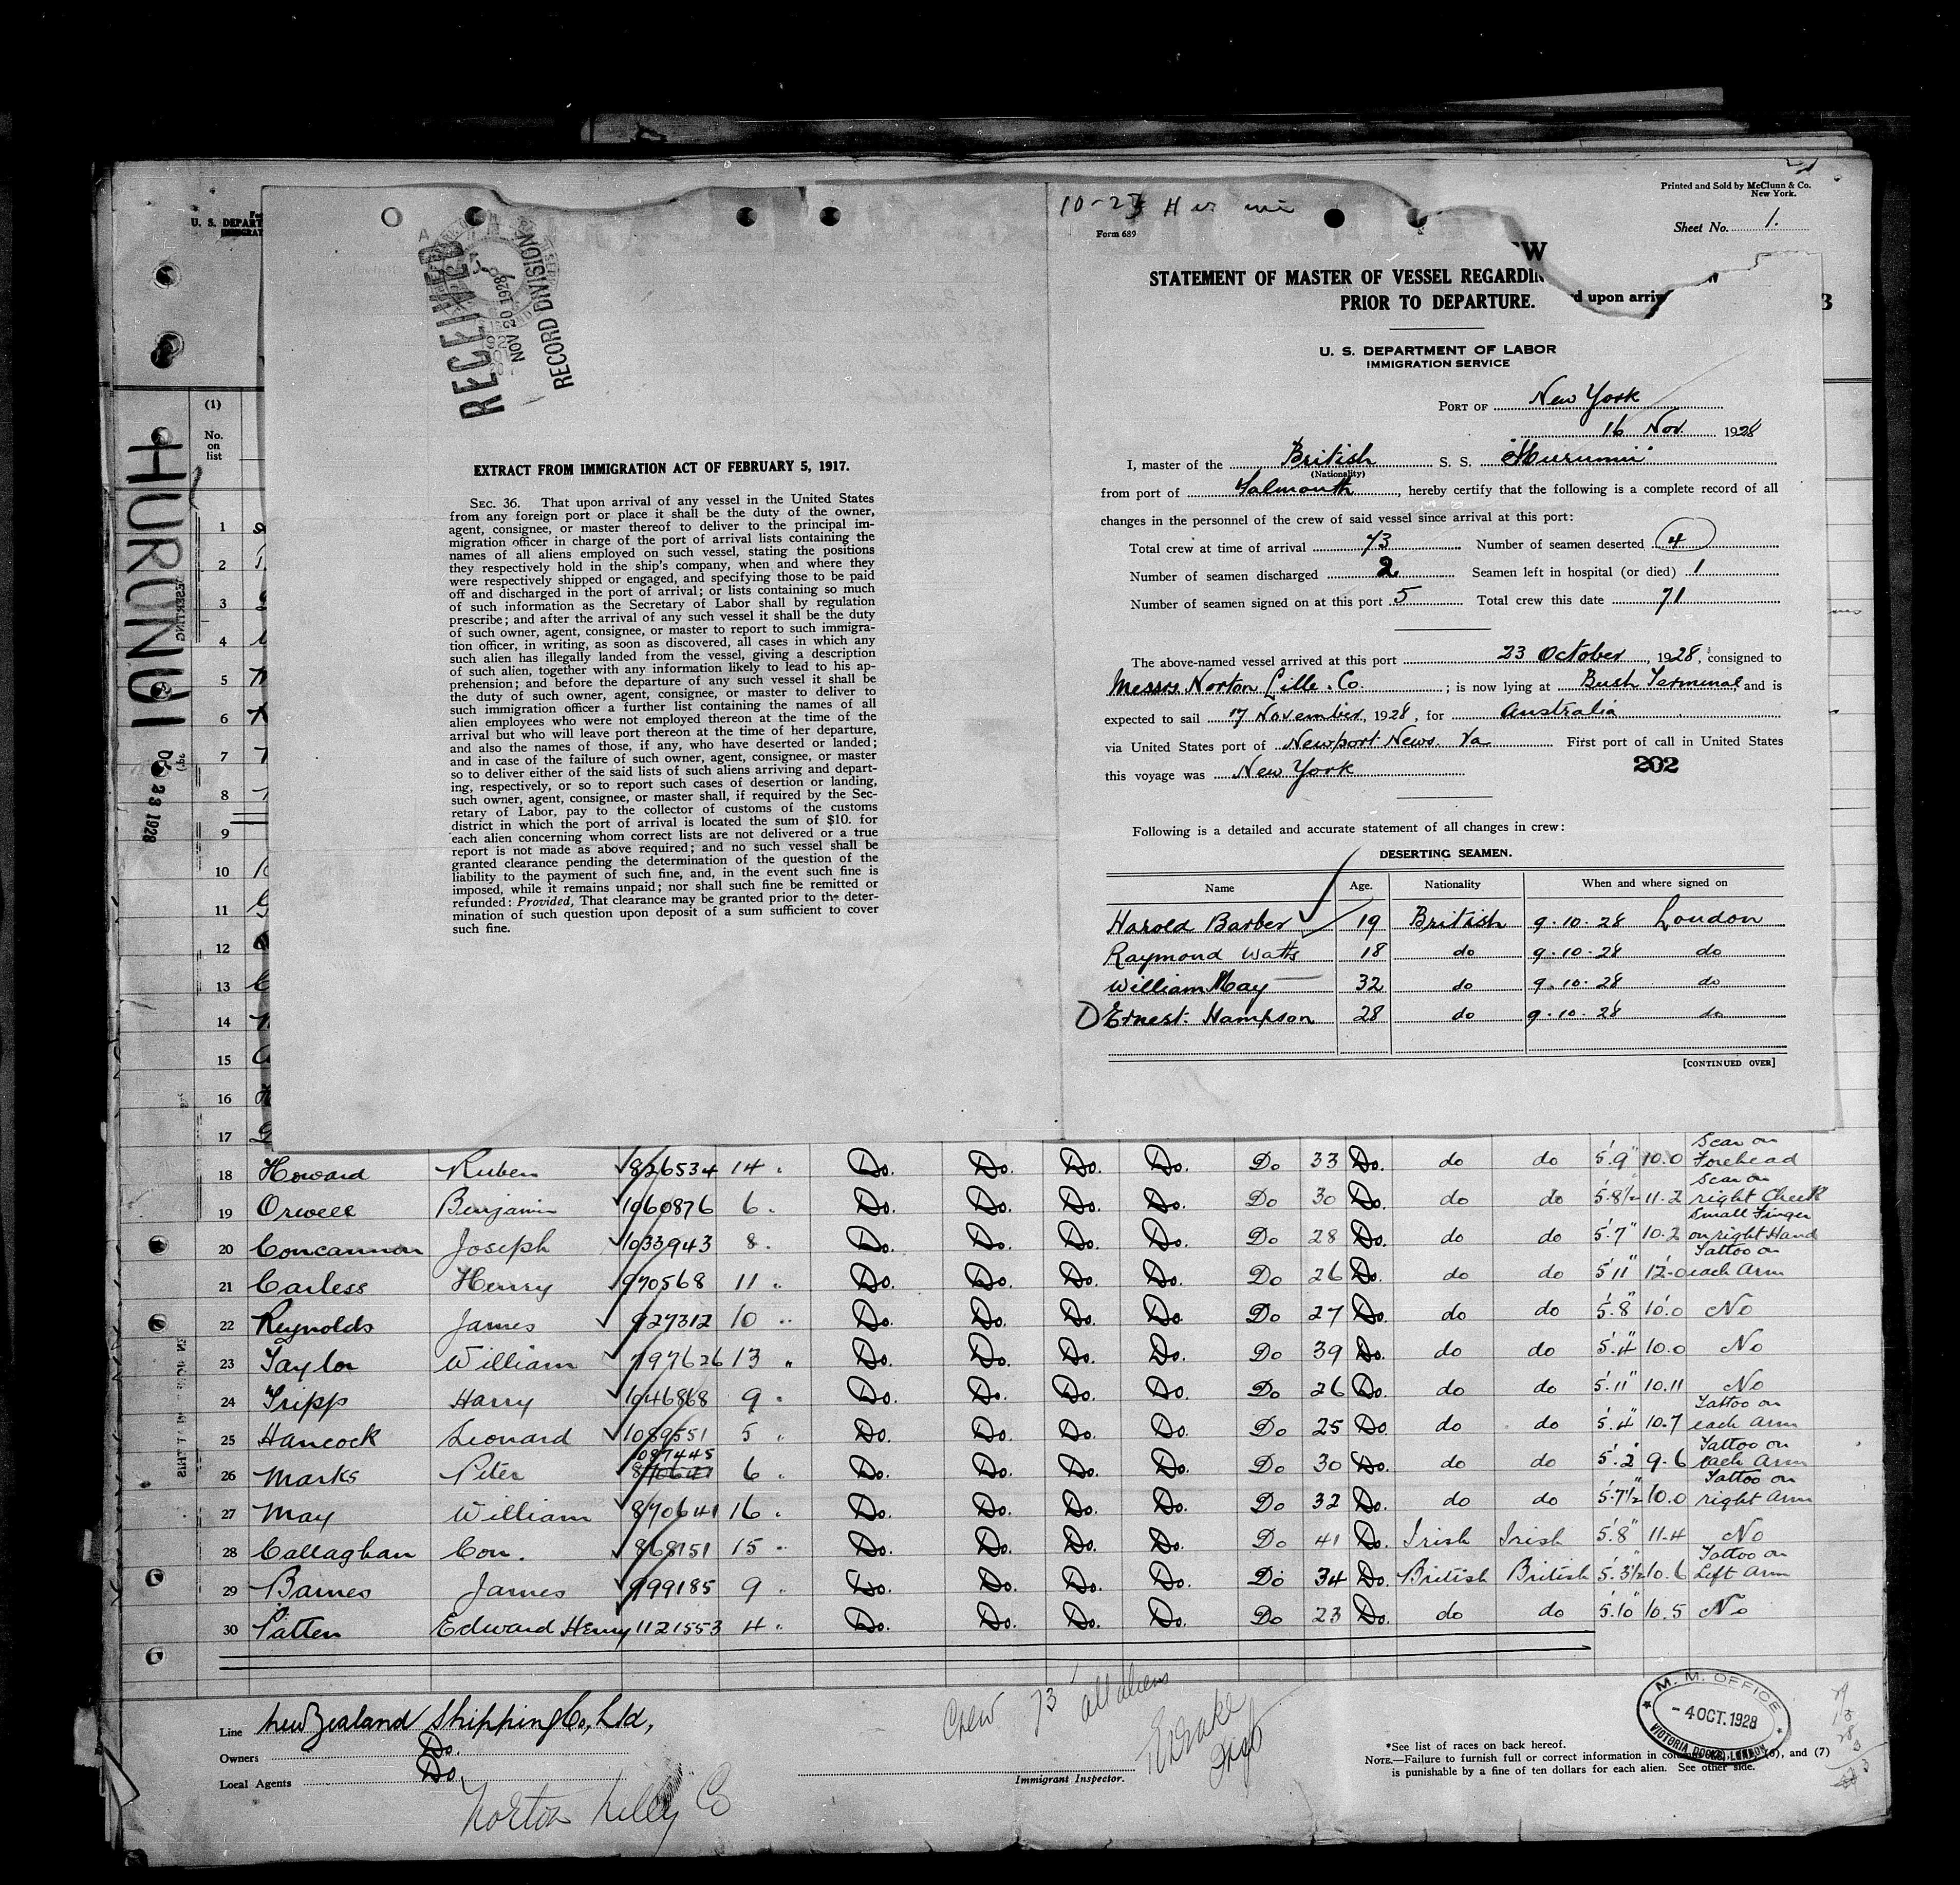 Printed and Sold by McClunn & Co.
New York.
Sheet No. 1.
U. S. DEPART
HURUNUI
DEC 23 1928
(1)
No.
on
list
1
2
3
4
5
6
7
8
9
10
11
12
13
14
15
16
17
RECEIVED
NOV 20 1928
RECORD DIVISION
EXTRACT FROM IMMIGRATION ACT OF FEBRUARY 5, 1917.
SEC. 36. That upon arrival of any vessel in the United States
from any foreign port or place it shall be the duty of the owner,
agent, consignee, or master thereof to deliver to the principal im-
migration officer in charge of the port of arrival lists containing the
names of all aliens employed on such vessel, stating the positions
they respectively hold in the ship's company, when and where they
were respectively shipped or engaged, and specifying those to be paid
off and discharged in the port of arrival; or lists containing so much
of such information as the Secretary of Labor shall by regulation
prescribe; and after the arrival of any such vessel it shall be the duty
of such owner, agent, consignee, or master to report to such immigra-
tion officer, in writing, as soon as discovered, all cases in which any
such alien has illegally landed from the vessel, giving a description
of such alien, together with any information likely to lead to his ap-
prehension; and before the departure of any such vessel it shall be
the duty of such owner, agent, consignee, or master to deliver to
such immigration officer a further list containing the names of all
alien employees who were not employed thereon at the time of the
arrival but who will leave port thereon at the time of her departure,
and also the names of those, if any, who have deserted or landed;
and in case of the failure of such owner, agent, consignee, or master
so to deliver either of the said lists of such aliens arriving and depart-
ing, respectively, or so to report such cases of desertion or landing,
such owner, agent, consignee, or master shall, if required by the Sec-
retary of Labor, pay to the collector of customs of the customs
district in which the port of arrival is located the sum of $10. for
each alien concerning whom correct lists are not delivered or a true
report is not made as above required; and no such vessel shall be
granted clearance pending the determination of the question of the
liability to the payment of such fine, and, in the event such fine is
imposed, while it remains unpaid; nor shall such fine be remitted or
refunded: Provided, That clearance may be granted prior to the deter-
mination of such question upon deposit of a sum sufficient to cover
such fine.
10-23
Form 689
STATEMENT OF MASTER OF VESSEL REGARDIN W
PRIOR TO DEPARTURE. d upon arriv
U. S. DEPARTMENT OF LABOR
IMMIGRATION SERVICE
PORT OF New York
16 Nov. 1928
I, master of the British S. S. "Hurunui"
(Nationality)
from port of Falmouth, hereby certify that the following is a complete record of all
changes in the personnel of the crew of said vessel since arrival at this port:
Total crew at time of arrival 73 Number of seamen deserted 4
Number of seamen discharged 2 Seamen left in hospital (or died) 1
Number of seamen signed on at this port 5 Total crew this date 71
The above-named vessel arrived at this port 23 October, 1928, consigned to
Messrs Norton Lille. Co.; is now lying at Bush Terminal and is
expected to sail 17 November, 1928, for Australia
via United States port of Newport News. Va First port of call in United States
this voyage was New York 202
Following is a detailed and accurate statement of all changes in crew:
DESERTING SEAMEN.
Name Age. Nationality When and where signed on
Harold Barber 19 British 9.10.28 London
Raymond Watts 18 do 9.10.28 do
William May 32 do 9.10.28 do
Ernest Hampson 28 do 9.10.28 do
[CONTINUED OVER]
18 Howard Ruben 826534 14 " Do. Do. Do. Do. Do 33 Do. do do 5'9" 10.0 Scar on Forehead
19 Orwell Benjamin 1060876 6 " Do. Do. Do. Do. Do 30 Do. do do 5'8½ 11.2 Scar on right Cheek
20 Concannon Joseph 1033943 8 " Do. Do. Do. Do. Do 28 Do. do do 5'7" 10.2 Small Finger on right Hand
21 Carless Henry 970568 11 " Do. Do. Do. Do. Do 26 Do. do do 5'11" 12-0 Tattoo on each Arm
22 Reynolds James 927312 10 " Do. Do. Do. Do. Do 27 Do. do do 5'8" 10.0 No
23 Taylor William 797626 13 " Do. Do. Do. Do. Do 39 Do. do do 5'4" 10.0 No
24 Tripp Harry 1046868 9 " Do. Do. Do. Do. Do 26 Do. do do 5'11" 10.11 No
25 Hancock Leonard 1089551 5 " Do. Do. Do. Do. Do 25 Do. do do 5'4" 10.7 Tattoo on each arm
26 Marks Peter 1097445 6 " Do. Do. Do. Do. Do 30 Do. do do 5'2" 9.6 Tattoo on each Arm
27 May William 870641 16 " Do. Do. Do. Do. Do 32 Do. do do 5'7½" 10.0 Tattoo on right Arm
28 Callaghan Con. 868151 15 " Do. Do. Do. Do. Do 41 Do. Irish Irish 5'8" 11.4 No
29 Barnes James 999185 9 " Do. Do. Do. Do. Do 34 Do. British British 5'3½ 10.6 Tattoo on Left Arm
30 Patten Edward Henry 1121553 4 " Do. Do. Do. Do. Do 23 Do. do do 5'10" 10.5 No
Line New Zealand Shipping Co, Ltd,
Owners Do.
Local Agents Do.
Norton Lilly Co
Crew 73 all aliens
Immigrant Inspector.
M. M. OFFICE
- 4 OCT. 1928
VICTORIA DOCKS, LONDON
*See list of races on back hereof.
NOTE.—Failure to furnish full or correct information in col (6), and (7)
is punishable by a fine of ten dollars for each alien. See other side.